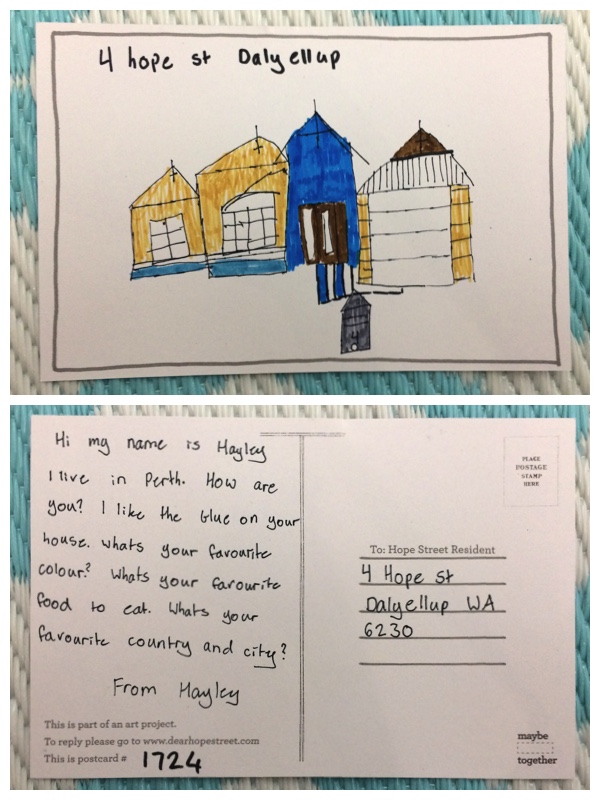 4 hope st Dalyellup
Hi my name is Hayley
I live in Perth. How are
you? I like the blue on your
house. whats your favourite
colour? whats your favourite
food to eat. whats your
favourite country and city?
From Hayley
This is part of an art project.
To reply please go to www.dearhopestreet.com
This is postcard # 1724
PLACE
POSTAGE
STAMP
HERE
To: Hope Street Resident
4 Hope st
Dalyellup WA
6230
maybe
together